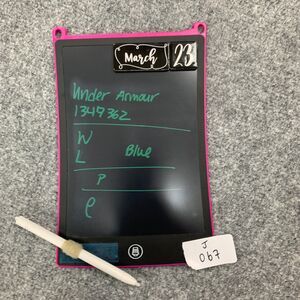 March 23
Under Armour
1349362
W
L Blue
P
e
J
067